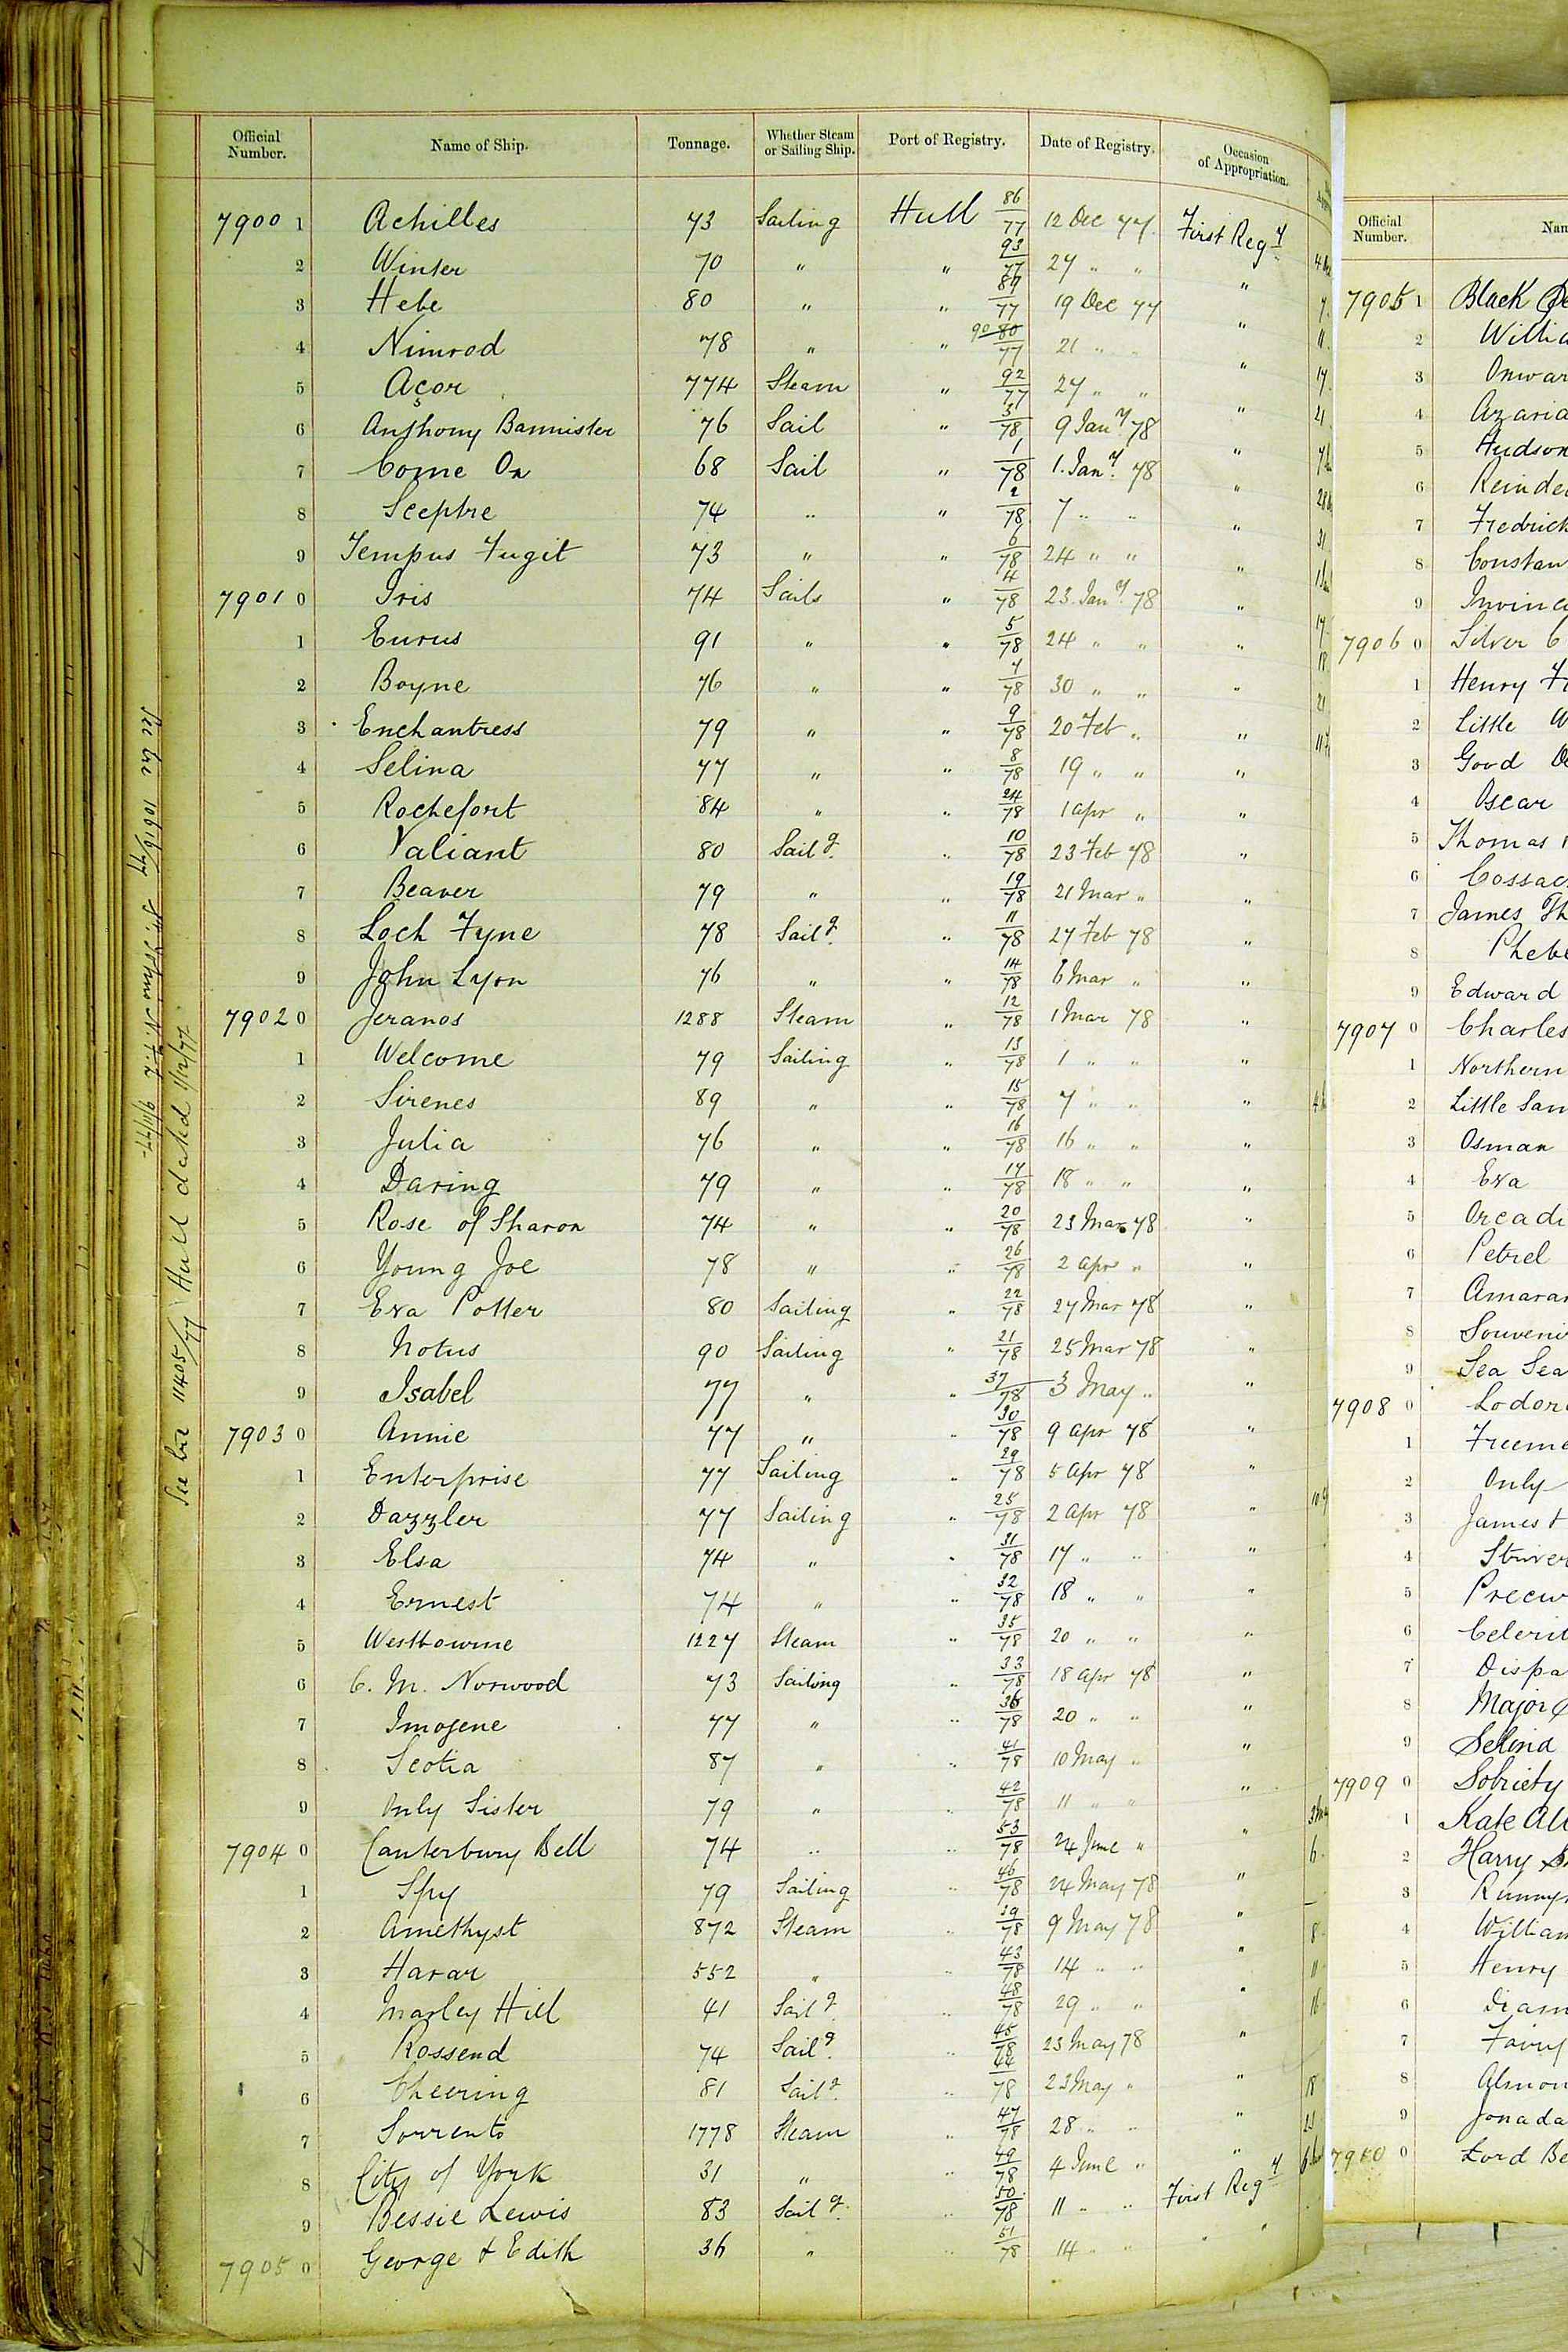 Official Number. Name of Ship. Tonnage. Whether Steam or Sailing Ship. Port of Registry. Date of Registry. Occasion of Appropriation.
7900 1 Achilles 73 Sailing Hull 86/77 12 Dec 77. First Regy
2 Winter 70 " " 93/77 27 " " "
3 Hebe 80 " " 89/77 19 Dec 77 "
4 Nimrod 78 " " 90 80/77 21 " " "
5 Açor 774 Steam " 92/77 27 " " "
6 Anthony Bannister 76 Sail " 3/78 9 Jany 78 "
7 Come On 68 Sail " 1/78 1. Jany. 78 "
8 Sceptre 74 " " 2/78 7 " " "
9 Tempus Fugit 73 " " 6/78 24 " " "
7901 0 Iris 74 Sails " 4/78 23. Jany. 78 "
1 Eurus 91 " " 5/78 24 " " "
2 Boyne 76 " " 7/78 30 " " "
3 Enchantress 79 " " 9/78 20 Feb " "
4 Selina 77 " " 8/78 19 " " "
5 Rochefort 84 " " 24/78 1 Apr " "
6 Valiant 80 Sailg. " 10/78 23 Feb 78 "
7 Beaver 79 " " 19/78 21 Mar " "
8 Loch Fyne 78 Sailg. " 11/78 27 Feb 78 "
9 John Lyon 76 " " 14/78 6 Mar " "
7902 0 Jeranos 1288 Steam " 12/78 1 Mar 78 "
1 Welcome 79 Sailing " 13/78 1 " " "
2 Sirenes 89 " " 15/78 7 " " "
3 Julia 76 " " 16/78 16 " " "
4 Daring 79 " " 17/78 18 " " "
5 Rose of Sharon 74 " " 20/78 23 Mar 78 "
6 Young Joe 78 " " 26/78 2 Apr " "
7 Eva Potter 80 Sailing " 22/78 27 Mar 78 "
8 Notus 90 Sailing " 21/78 25 Mar 78 "
9 Isabel 77 " " 37/78 3 May " "
7903 0 Annie 77 " " 30/78 9 Apr 78 "
1 Enterprise 77 Sailing " 29/78 5 Apr 78 "
2 Dazzler 77 Sailing " 25/78 2 Apr 78 "
3 Elsa 74 " " 31/78 17 " " "
4 Ernest 74 " " 32/78 18 " " "
5 Westbourne 1227 Steam " 35/78 20 " " "
6 C. M. Norwood 73 Sailing " 33/78 18 Apr 78 "
7 Imogene 77 " " 36/78 20 " " "
8 Scotia 87 " " 41/78 10 May " "
9 Only Sister 79 " " 42/78 11 " " "
7904 0 Canterbury Bell 74 " " 53/78 24 June " "
1 Spy 79 Sailing " 46/78 24 May 78 "
2 Amethyst 872 Steam " 39/78 9 May 78 "
3 Harar 552 " " 43/78 14 " " "
4 Marley Hill 41 Sailg. " 48/78 29 " " "
5 Rossend 74 Sailg. " 45/78 23 May 78 "
6 Cheering 81 Sailg. " 44/78 23 May " "
7 Sorrento 1778 Steam " 47/78 28 " " "
8 City of York 31 " " 49/78 4 June " "
9 Bessie Lewis 83 Sailg. " 50/78 11 " " First Regy
7905 0 George & Edith 36 " " 51/78 14 " " " "
See bre 10616/77 9/11/77
See bre 11405/77 Hull dated 1/12/77
Official Number.
7905 1 Black
2 Willia
3 Onwar
4 Azaria
5 Hudson
6 Reinde
7 Fredrick
8 Constan
9 Invinc
7906 0 Silver
1 Henry
2 Little
3 Good
4 Oscar
5 Thomas
6 Cossac
7 James Th
8 Phebe
9 Edward
7907 0 Charles
1 Northern
2 Little Sam
3 Osman
4 Eva
5 Orcadi
6 Petrel
7 Amaran
8 Souveni
9 Sea Sea
7908 0 Lodor
1 Freeme
2 Only
3 James &
4 Striver
5 Precur
6 Celerit
7 Dispa
8 Major
9 Selina
7909 0 Sobriety
1 Kate All
2 Harry
3 Runny
4 William
5 Henry
6 Diam
7 Fairy
8 Almon
9 Jonada
7910 0 Lord Be